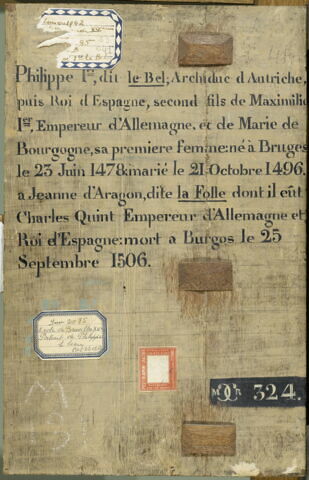 Philippe 1er, dit le Bel, Archiduc d'Autriche,
puis Roi d'Espagne, second fils de Maximilie
1er, Empereur d'Allemagne, et de Marie de
Bourgogne, sa premiere femme: né à Bruges
le 23 Juin 1478: marié le 21 Octobre 1496.
a Jeanne d'Aragon, dite la Folle dont il eût
Charles Quint Empereur d'Allemagne et
Roi d'Espagne: mort a Burgos le 25
Septembre 1506.
Ecole de Bruxelles
Portrait de Philippe
le Beau
324.